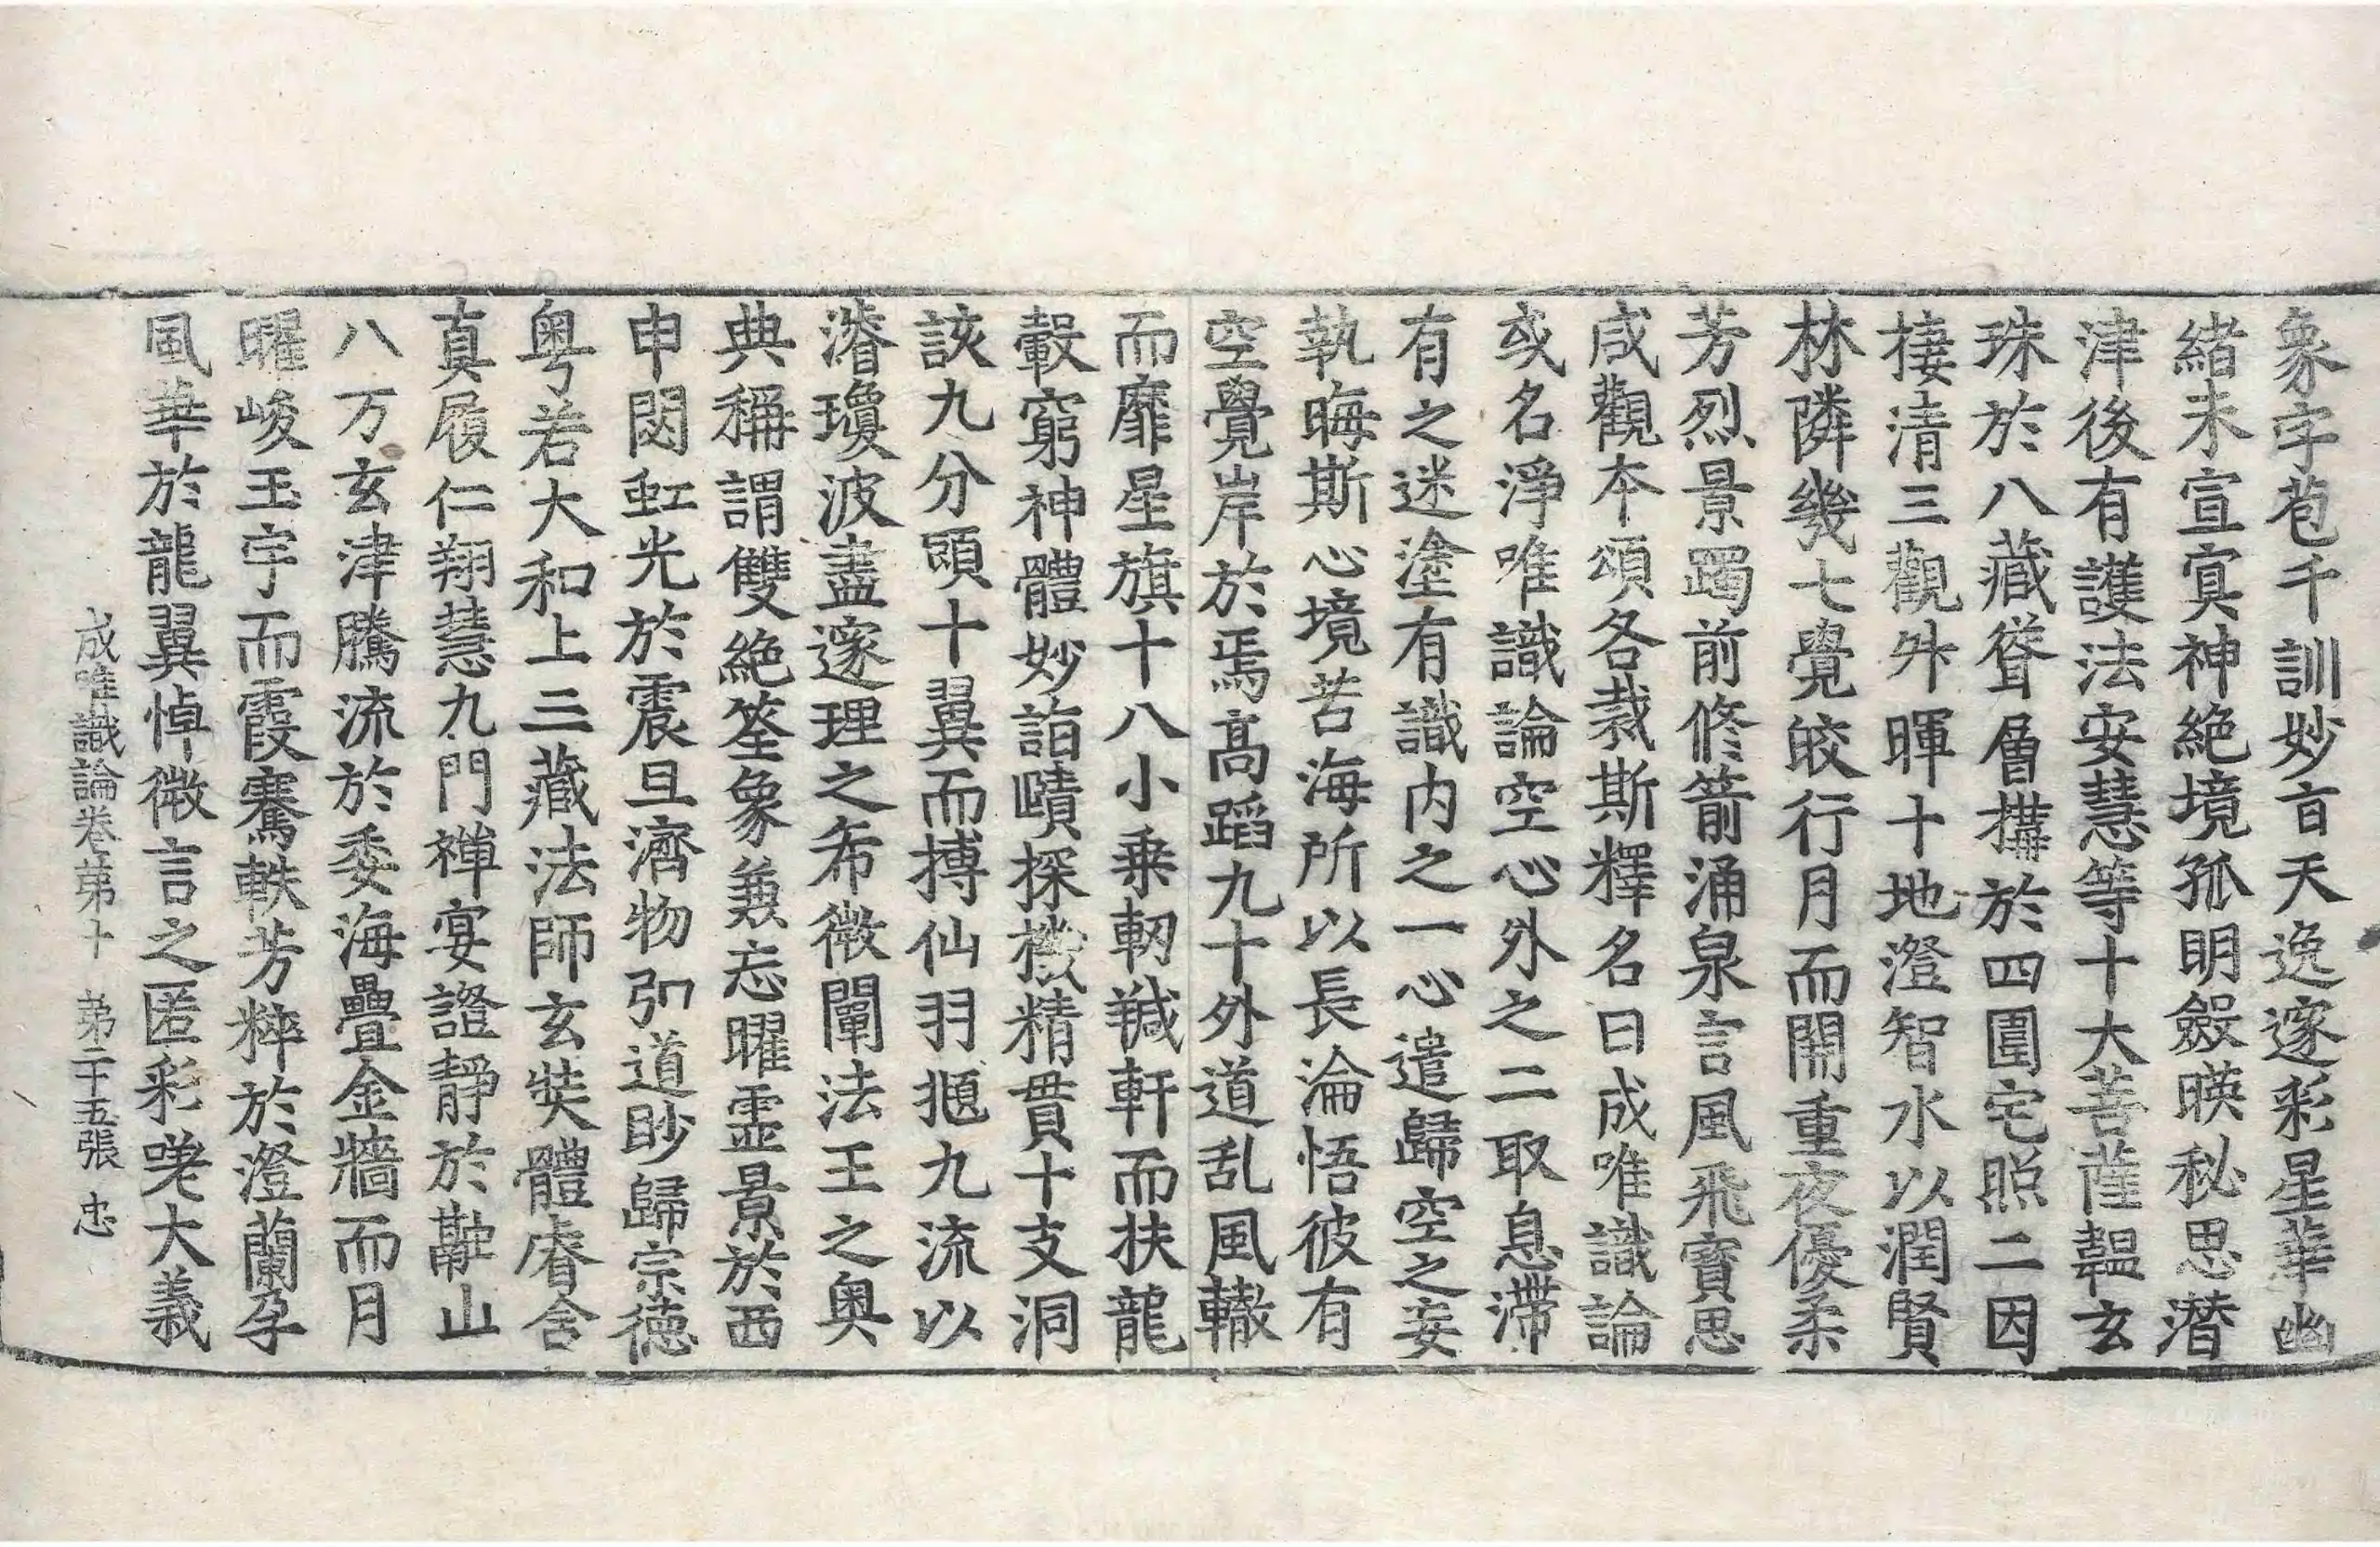 象字苞千訓妙旨天逸邃彩星華幽
緒未宣冥神絶境孤明斂暎秘思潜
津後有護法安慧等十大菩薩韞玄
珠於八藏聳層搆於四圍宅照二因
棲清三觀升暉十地澄智水以潤賢
林隣幾七覺皎行月而開重夜優柔
芳烈景躅前修箭涌泉言風飛寶思
咸觀本頌各裁斯釋名曰成唯識論
或名淨唯識論空心外之二取息滯
有之迷塗有識内之一心遣歸空之妄
執晦斯心境苦海所以長淪悟彼有
空覺岸於焉髙蹈九十外道乱風轍
而靡星旗十八小乗軔羬軒而扶龍
轂窮神體妙詣賾探機精貫十支洞
該九分頭十翼而摶仙羽頫九流以
濬瓊波盡邃理之希微闡法王之奥
典稱謂雙絶筌象兼忘曜靈景於西
申閟虹光於震旦濟物弘道眇歸宗德
粤若大和上三藏法師玄奘體睿含
真履仁翔慧九門禪宴證靜於觀山
八万玄津騰流於委海疊金牆而月
曜峻玉宇而霞騫軼芳粹於澄蘭孕
風華於龍翼悼微言之匿彩嗟大義
成唯識論卷第十　第二十五張　忠